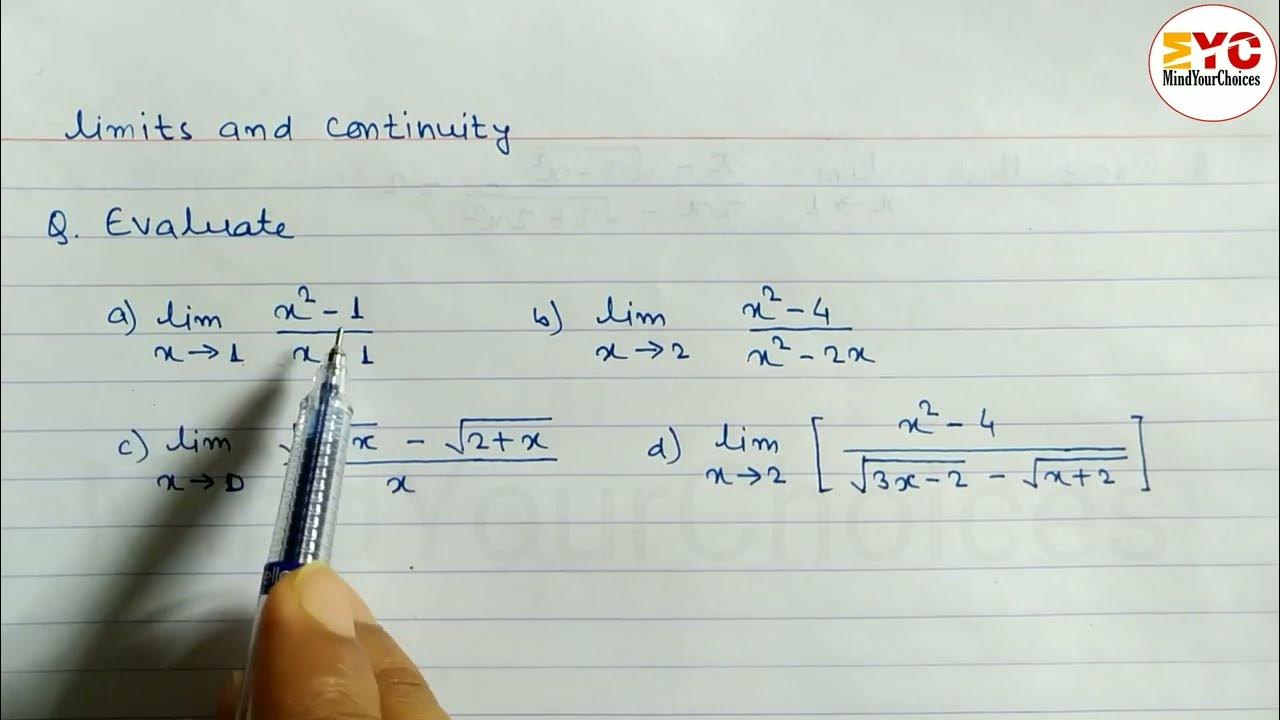 MYC
MindYourChoices
limits and continuity
Q. Evaluate
a) lim x→1 x² - 1 / x 1
b) lim x→2 x² - 4 / x² - 2x
c) lim x→0 √ x - √2+x / x
d) lim x→2 [ x² - 4 / √3x-2 - √x+2 ]
YourChoices